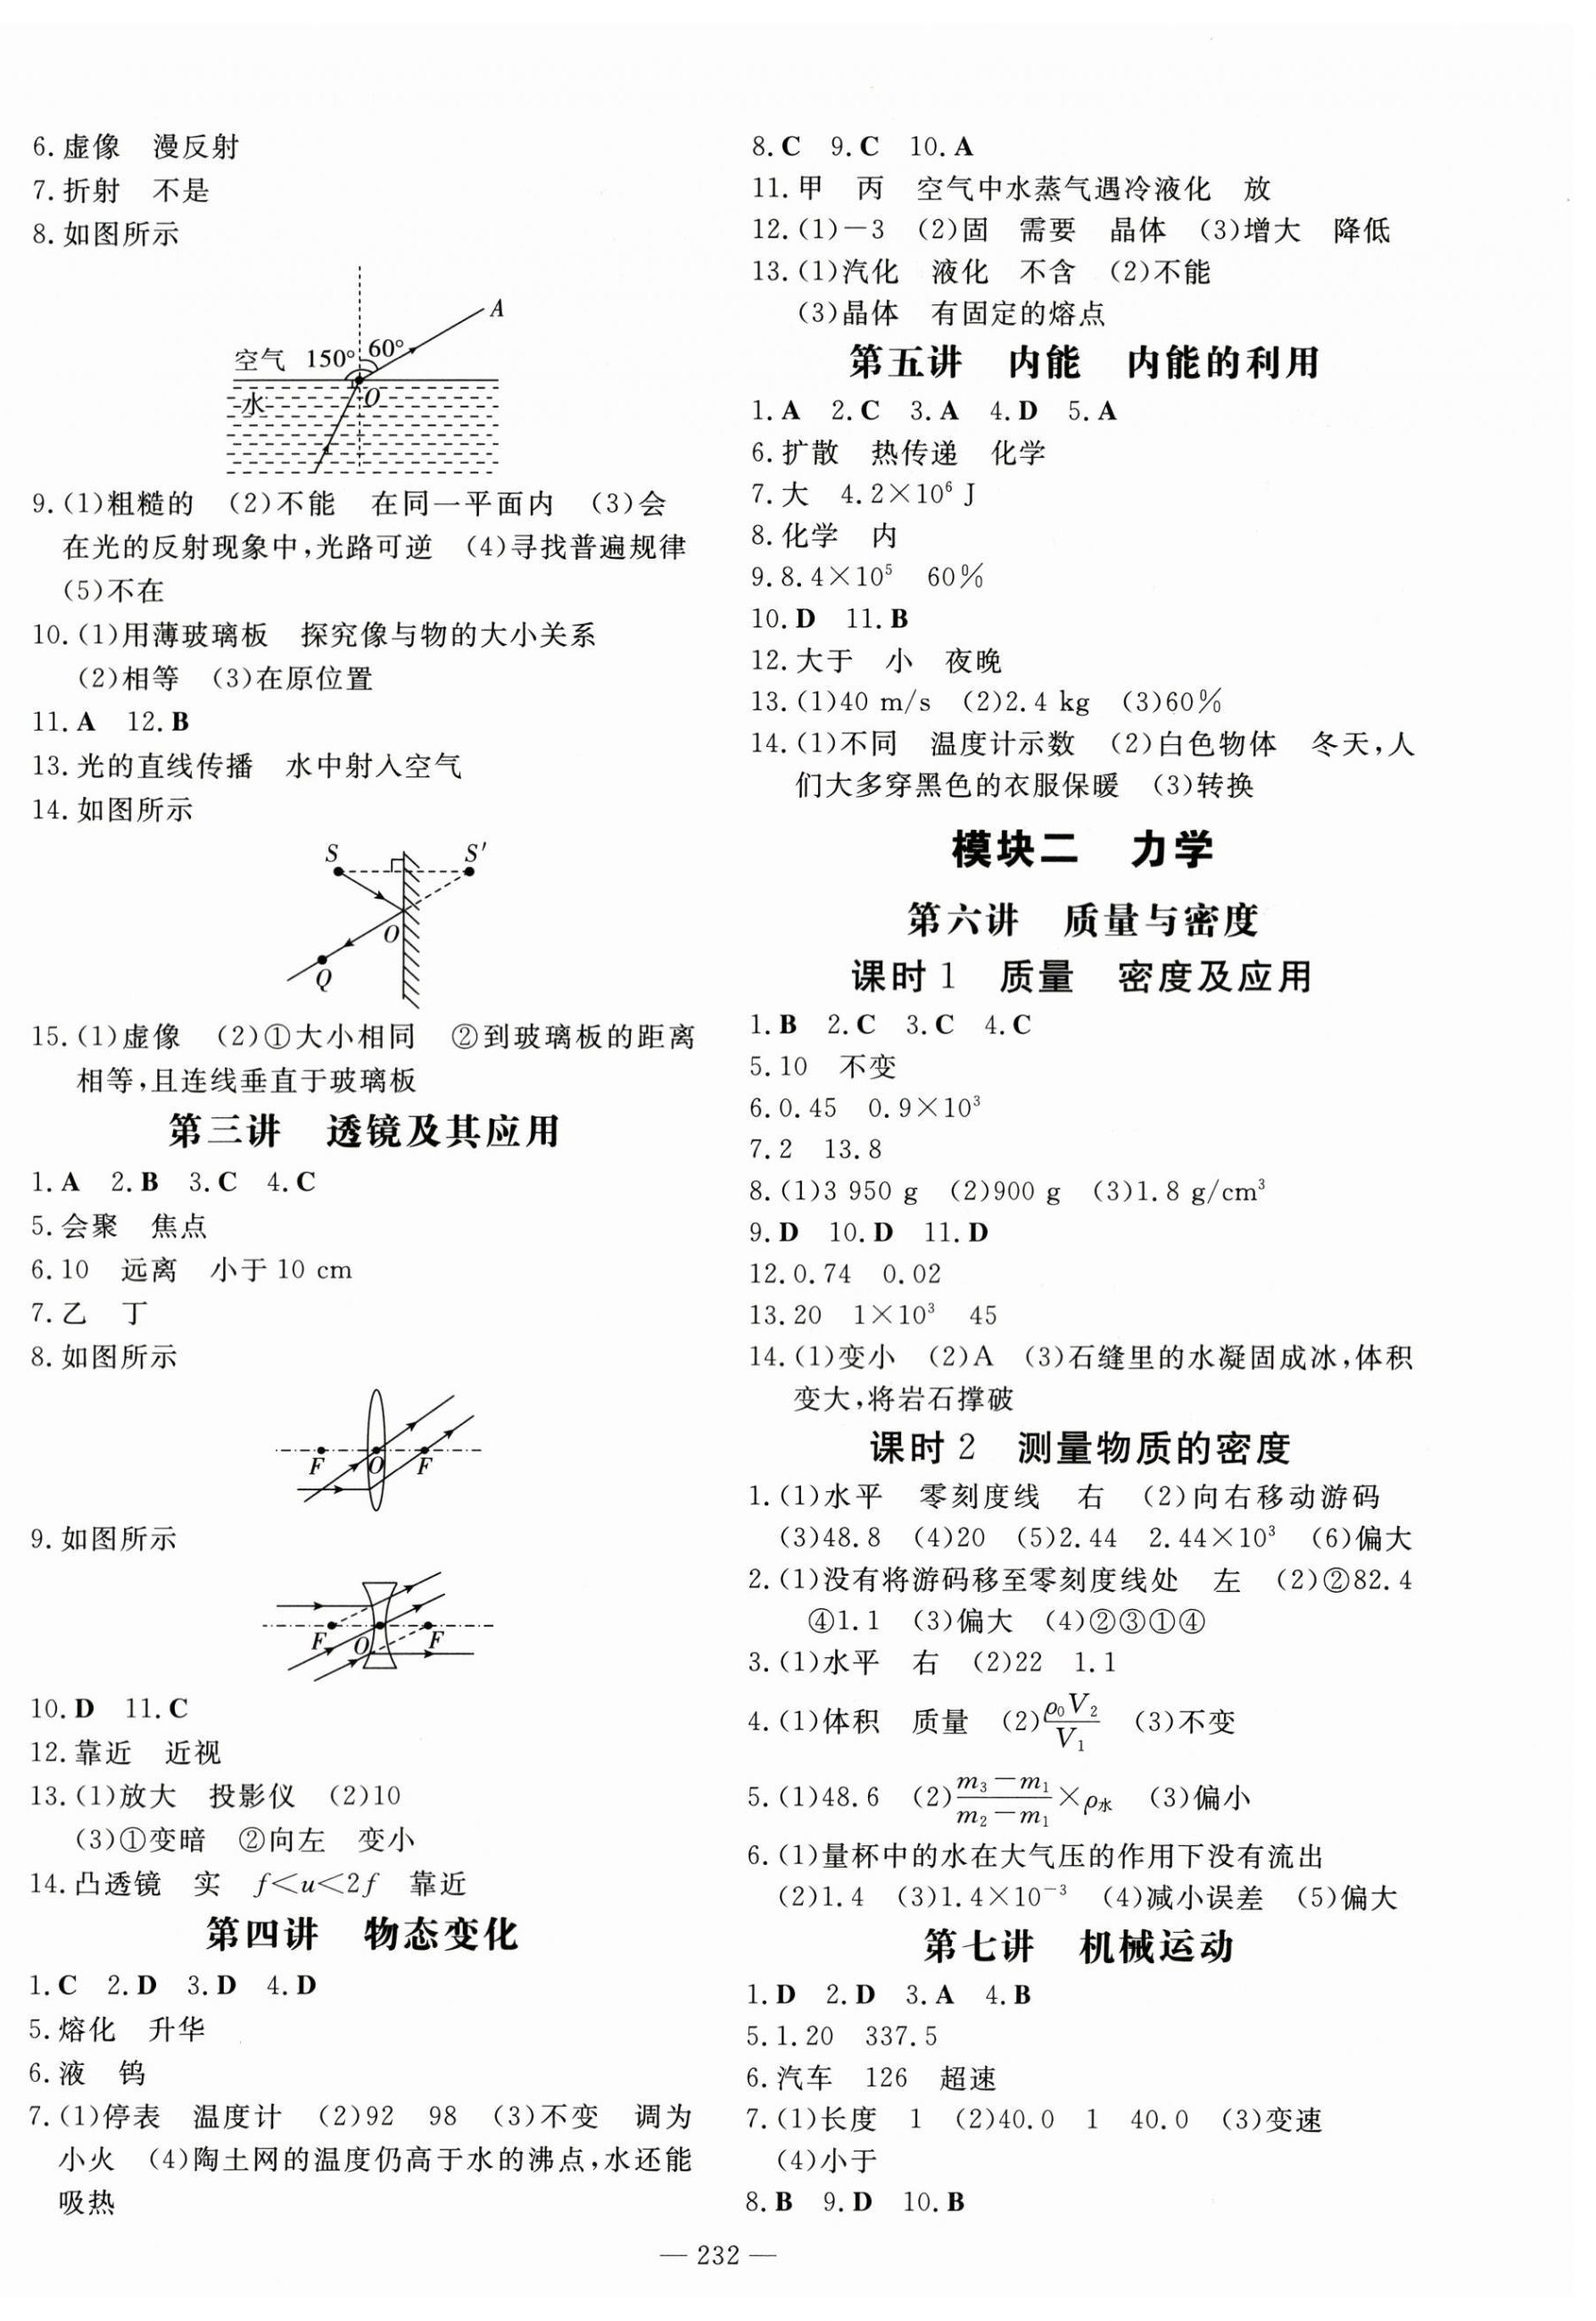 6.虚像　漫反射
7.折射　不是
8.如图所示
A
空气　150°　60°
水　O
9.(1)粗糙的　(2)不能　在同一平面内　(3)会
在光的反射现象中,光路可逆　(4)寻找普遍规律
(5)不在
10.(1)用薄玻璃板　探究像与物的大小关系
(2)相等　(3)在原位置
11.A　12.B
13.光的直线传播　水中射入空气
14.如图所示
S　S′
O
Q
15.(1)虚像　(2)①大小相同　②到玻璃板的距离
相等,且连线垂直于玻璃板
第三讲　透镜及其应用
1.A　2.B　3.C　4.C
5.会聚　焦点
6.10　远离　小于10 cm
7.乙　丁
8.如图所示
F　O　F
9.如图所示
F　O　F
10.D　11.C
12.靠近　近视
13.(1)放大　投影仪　(2)10
(3)①变暗　②向左　变小
14.凸透镜　实　f<u<2f　靠近
第四讲　物态变化
1.C　2.D　3.D　4.D
5.熔化　升华
6.液　钨
7.(1)停表　温度计　(2)92　98　(3)不变　调为
小火　(4)陶土网的温度仍高于水的沸点,水还能
吸热
8.C　9.C　10.A
11.甲　丙　空气中水蒸气遇冷液化　放
12.(1)−3　(2)固　需要　晶体　(3)增大　降低
13.(1)汽化　液化　不含　(2)不能
(3)晶体　有固定的熔点
第五讲　内能　内能的利用
1.A　2.C　3.A　4.D　5.A
6.扩散　热传递　化学
7.大　4.2×10⁶ J
8.化学　内
9.8.4×10⁵　60%
10.D　11.B
12.大于　小　夜晚
13.(1)40 m/s　(2)2.4 kg　(3)60%
14.(1)不同　温度计示数　(2)白色物体　冬天,人
们大多穿黑色的衣服保暖　(3)转换
模块二　力学
第六讲　质量与密度
课时1　质量　密度及应用
1.B　2.C　3.C　4.C
5.10　不变
6.0.45　0.9×10³
7.2　13.8
8.(1)3 950 g　(2)900 g　(3)1.8 g/cm³
9.D　10.D　11.D
12.0.74　0.02
13.20　1×10³　45
14.(1)变小　(2)A　(3)石缝里的水凝固成冰,体积
变大,将岩石撑破
课时2　测量物质的密度
1.(1)水平　零刻度线　右　(2)向右移动游码
(3)48.8　(4)20　(5)2.44　2.44×10³　(6)偏大
2.(1)没有将游码移至零刻度线处　左　(2)②82.4
④1.1　(3)偏大　(4)②③①④
3.(1)水平　右　(2)22　1.1
4.(1)体积　质量　(2)ρ₀V₂/V₁　(3)不变
5.(1)48.6　(2)(m₃−m₁)/(m₂−m₁)×ρ水　(3)偏小
6.(1)量杯中的水在大气压的作用下没有流出
(2)1.4　(3)1.4×10⁻³　(4)减小误差　(5)偏大
第七讲　机械运动
1.D　2.D　3.A　4.B
5.1.20　337.5
6.汽车　126　超速
7.(1)长度　1　(2)40.0　1　40.0　(3)变速
(4)小于
8.B　9.D　10.B
— 232 —